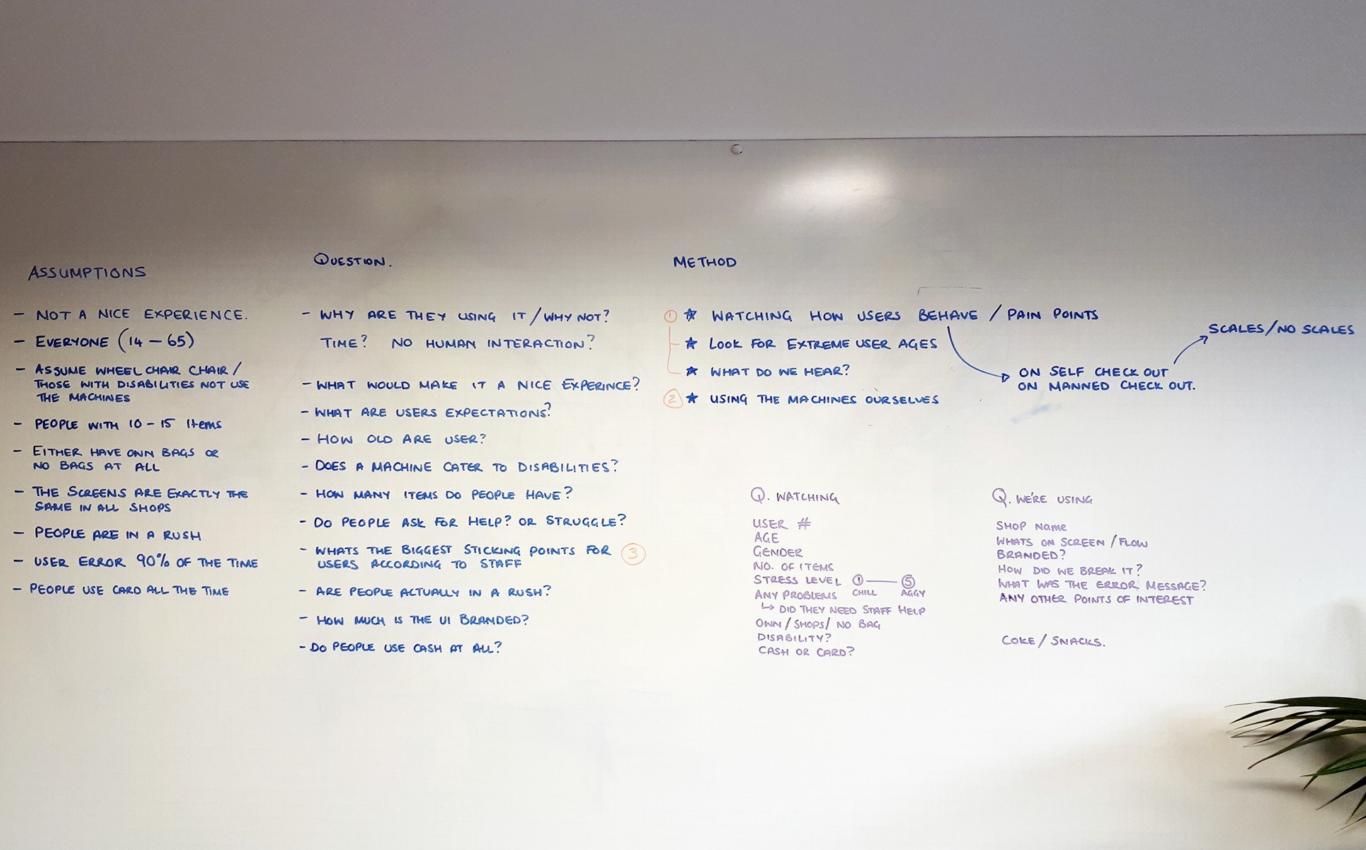 ASSUMPTIONS
- NOT A NICE EXPERIENCE.
- EVERYONE (14 - 65)
- ASSUME WHEEL CHAIR CHAIR /
THOSE WITH DISABILITIES NOT USE
THE MACHINES
- PEOPLE WITH 10 - 15 Items
- EITHER HAVE OWN BAGS OR
NO BAGS AT ALL
- THE SCREENS ARE EXACTLY THE
SAME IN ALL SHOPS
- PEOPLE ARE IN A RUSH
- USER ERROR 90% OF THE TIME
- PEOPLE USE CARD ALL THE TIME
QUESTION.
- WHY ARE THEY USING IT / WHY NOT?
TIME? NO HUMAN INTERACTION?
- WHAT WOULD MAKE IT A NICE EXPERINCE?
- WHAT ARE USERS EXPECTATIONS?
- HOW OLD ARE USER?
- DOES A MACHINE CATER TO DISABILITIES?
- HOW MANY ITEMS DO PEOPLE HAVE?
- DO PEOPLE ASK FOR HELP? OR STRUGGLE?
- WHATS THE BIGGEST STICKING POINTS FOR 3
USERS ACCORDING TO STAFF
- ARE PEOPLE ACTUALLY IN A RUSH?
- HOW MUCH IS THE UI BRANDED?
- DO PEOPLE USE CASH AT ALL?
METHOD
1 ★ WATCHING HOW USERS BEHAVE / PAIN POINTS
★ LOOK FOR EXTREME USER AGES
★ WHAT DO WE HEAR?
2 ★ USING THE MACHINES OURSELVES
ON SELF CHECK OUT
ON MANNED CHECK OUT.
SCALES/NO SCALES
Q. WATCHING
USER #
AGE
GENDER
NO. OF ITEMS
STRESS LEVEL 1 — 5
CHILL AGGY
ANY PROBLEMS
↳ DID THEY NEED STAFF HELP
OWN / SHOPS / NO BAG
DISABILITY?
CASH OR CARD?
Q. WE'RE USING
SHOP NAME
WHATS ON SCREEN / FLOW
BRANDED?
HOW DID WE BREAK IT?
WHAT WAS THE ERROR MESSAGE?
ANY OTHER POINTS OF INTEREST
COKE / SNACKS.